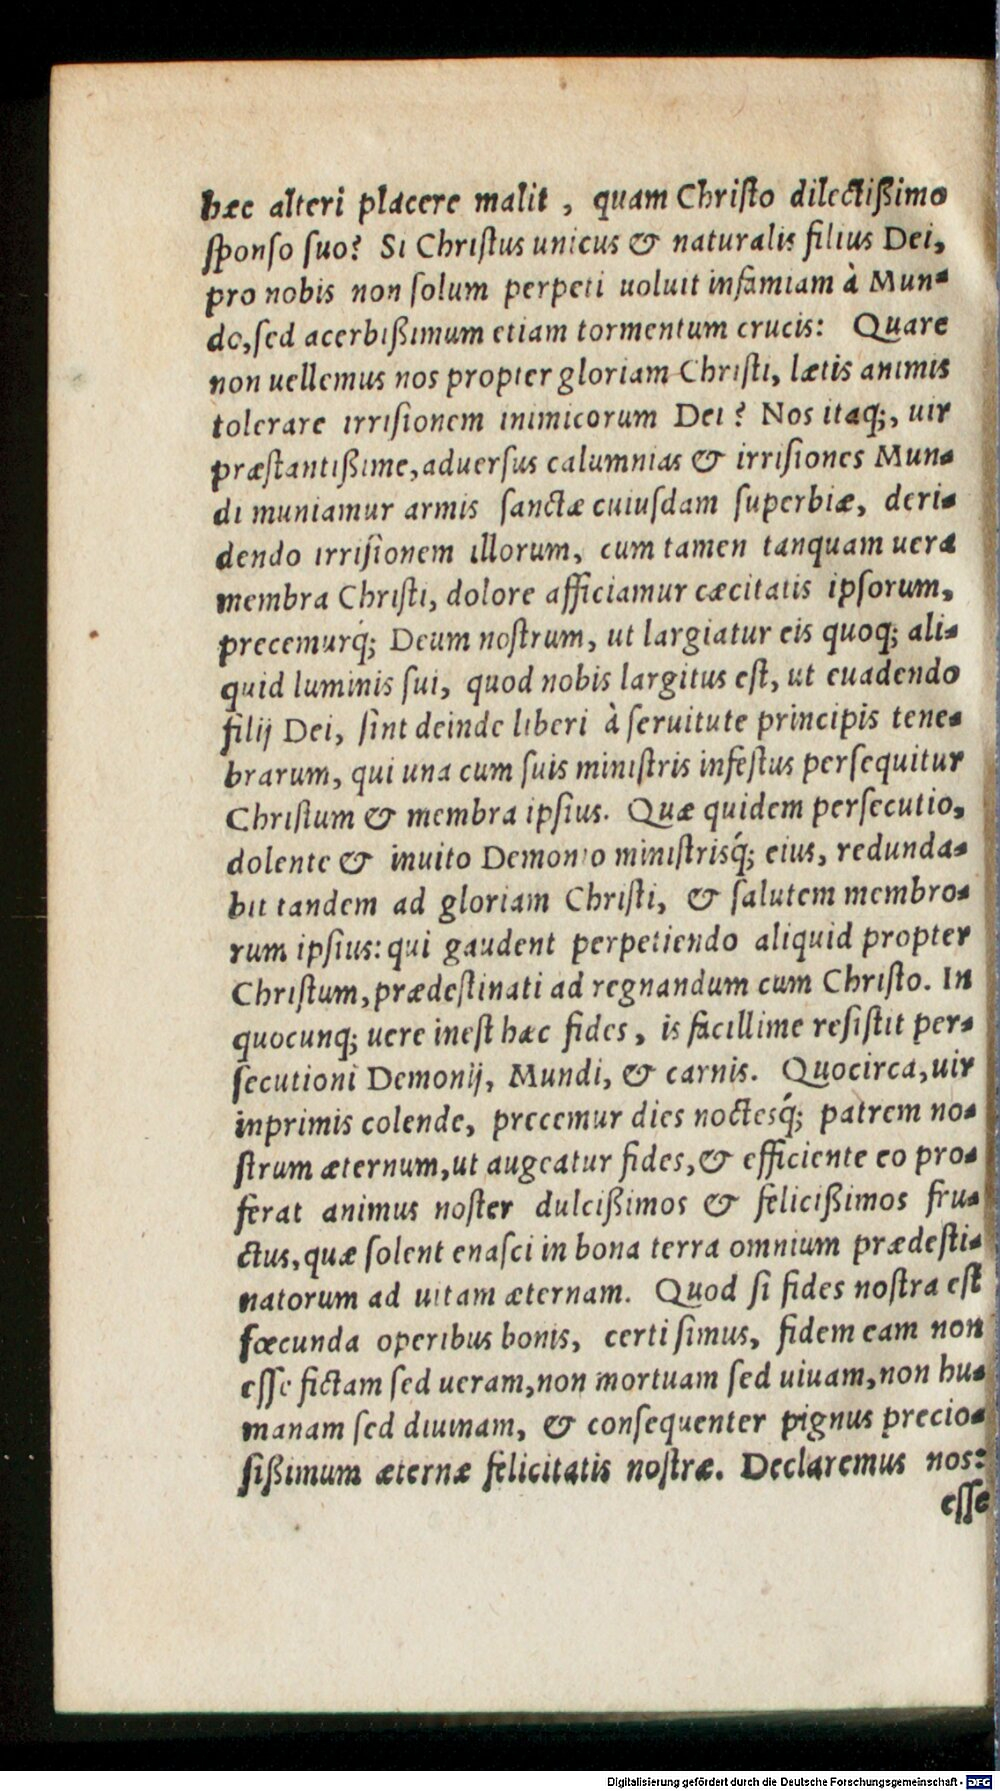 hæc alteri placere malit, quam Christo dilectißimo
sponso suo? Si Christus unicus & naturalis filius Dei,
pro nobis non solum perpeti uoluit infamiam à Mun-
do, sed acerbißimum etiam tormentum crucis: Quare
non uellemus nos propter gloriam Christi, lætis animis
tolerare irrisionem inimicorum Dei? Nos itaq;, uir
præstantißime, aduersus calumnias & irrisiones Mun-
di muniamur armis sanctæ cuiusdam superbiæ, deri-
dendo irrisionem illorum, cum tamen tanquam uera
membra Christi, dolore afficiamur cæcitatis ipsorum,
precemurq́; Deum nostrum, ut largiatur eis quoq; ali-
quid luminis sui, quod nobis largitus est, ut euadendo
filij Dei, sint deinde liberi à seruitute principis tene-
brarum, qui una cum suis ministris infestus persequitur
Christum & membra ipsius. Quæ quidem persecutio,
dolente & inuito Demonio ministrisq́; eius, redunda-
bit tandem ad gloriam Christi, & salutem membro-
rum ipsius: qui gaudent perpetiendo aliquid propter
Christum, prædestinati ad regnandum cum Christo. In
quocunq; uere inest hæc fides, is facillime resistit per-
secutioni Demonij, Mundi, & carnis. Quocirca, uir
inprimis colende, precemur dies noctesq́; patrem no-
strum æternum, ut augeatur fides, & efficiente eo pro-
ferat animus noster dulcißimos & felicißimos fru-
ctus, quæ solent enasci in bona terra omnium prædesti-
natorum ad uitam æternam. Quod si fides nostra est
fœcunda operibus bonis, certi simus, fidem eam non
esse fictam sed ueram, non mortuam sed uiuam, non hu-
manam sed diuinam, & consequenter pignus precio-
sißimum æternæ felicitatis nostræ. Declaremus nos:
esse
Digitalisierung gefördert durch die Deutsche Forschungsgemeinschaft - DFG